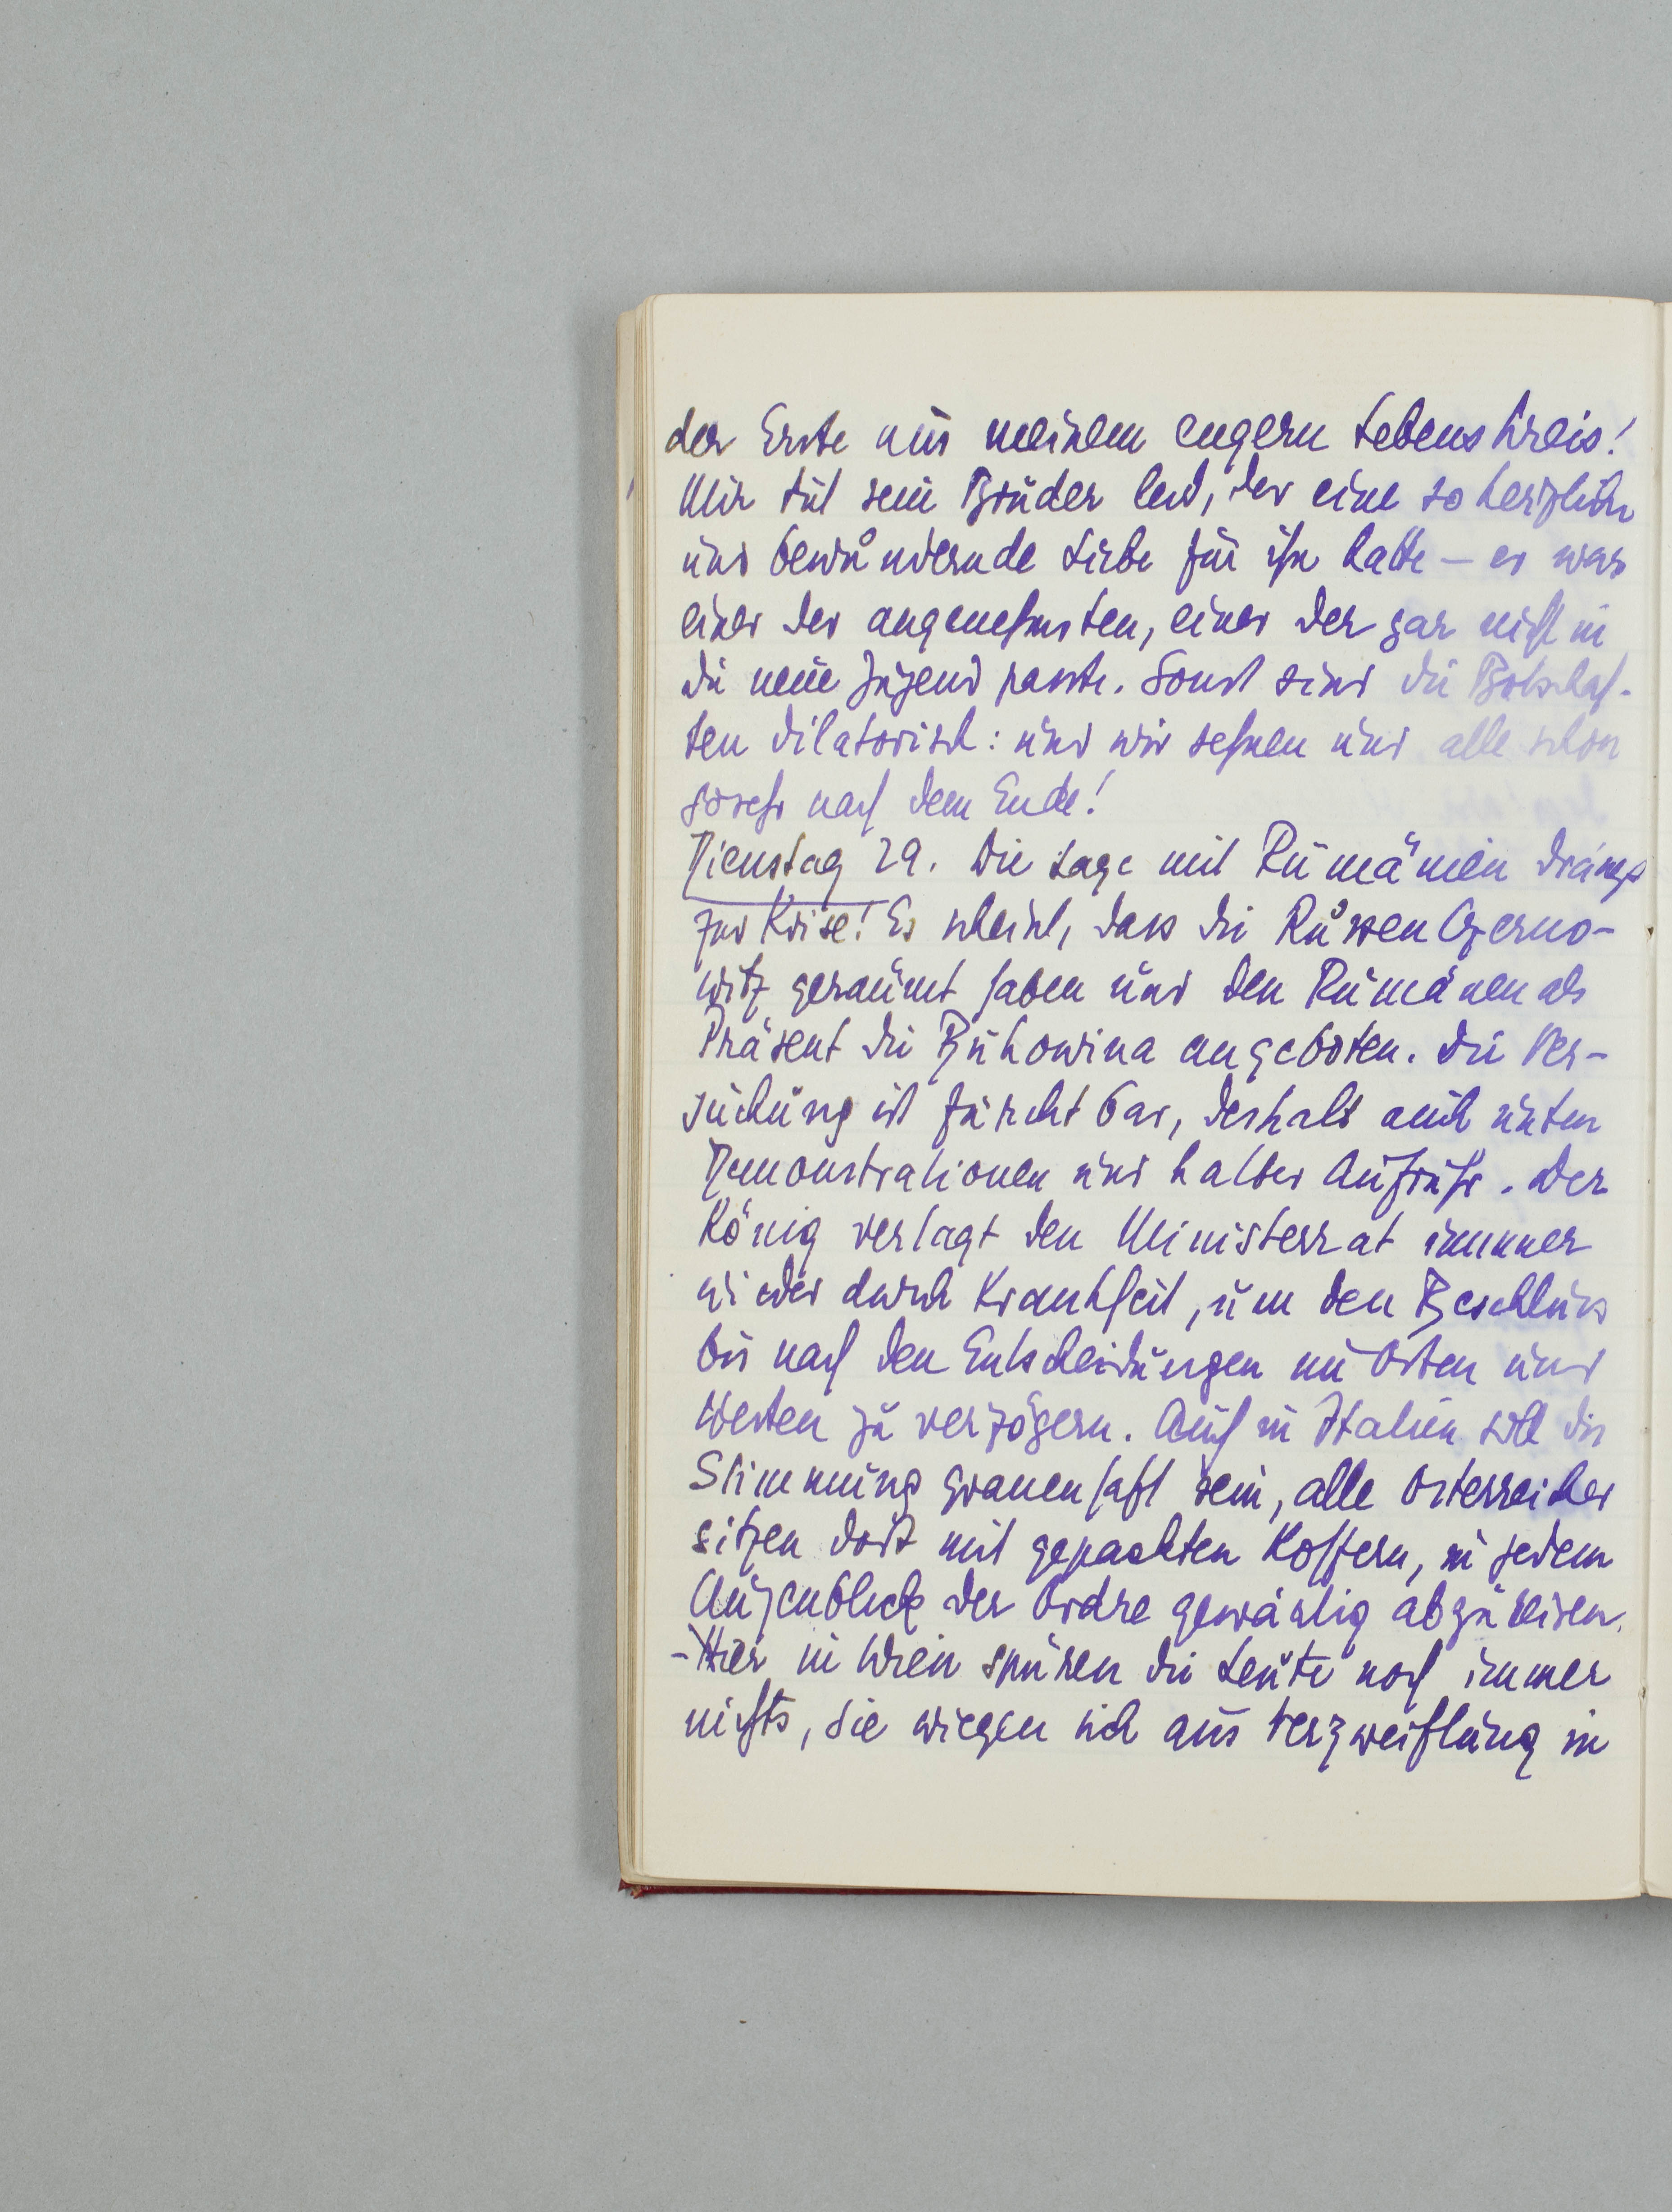 der Erste aus meinem engern Lebenskreis!
Mir tut sein Bruder leid, der eine so herzliche
und bewundernde Liebe für ihn hatte – es war
einer der angenehmsten, einer der gar nicht in
die neue Jugend passte. Sonst sind die Botschaf-
ten dilatorisch: und wir sehnen uns alle schon
sosehr nach dem Ende!
Dienstag 29. Die Lage mit Rumänien drängt
zur Krise! Es scheint, dass die Russen Czerno-
witz geräumt haben und den Rumänen als
Präsent die Bukowina angeboten. Die Ver-
suchung ist furchtbar, deshalb auch unten
Demonstrationen und halber Aufruhr. Der
König vertagt den Ministerrat immer
wieder durch Krankheit, um den Beschluss
bis nach den Entscheidungen im Osten und
Westen zu verzögern. Auch in Italien soll die
Stimmung grauenhaft sein, alle Österreicher
sitzen dort mit gepackten Koffern, in jedem
Augenblick der Ordre gewärtig abzureisen.
– Hier in Wien spüren die Leute noch immer
nichts, sie wiegen sich aus Verzweiflung in